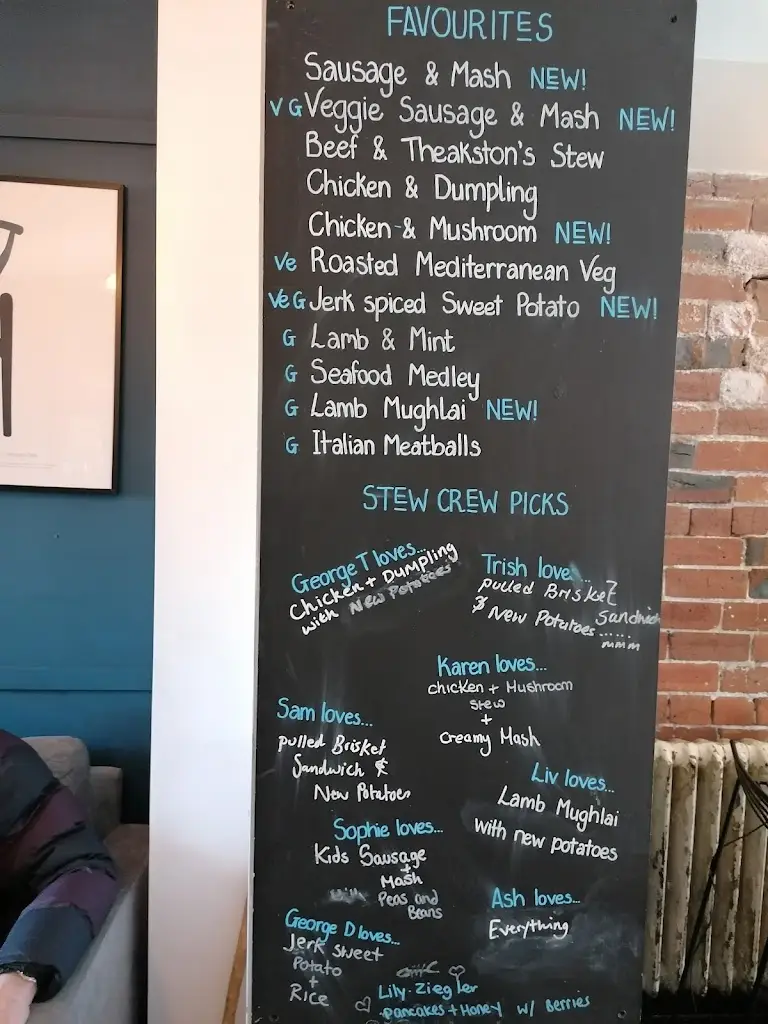 FAVOURITES
Sausage & Mash NEW!
V G Veggie Sausage & Mash NEW!
Beef & Theakston's Stew
Chicken & Dumpling
Chicken & Mushroom NEW!
Ve Roasted Mediterranean Veg
Ve G Jerk spiced Sweet Potato NEW!
G Lamb & Mint
G Seafood Medley
G Lamb Mughlai NEW!
G Italian Meatballs
STEW CREW PICKS
George T loves...
Chicken + Dumpling
with New Potatoes
Trish love...
pulled Brisket
& New Potatoes Sandwich
......
mmm
Karen loves...
chicken + Mushroom
stew
+
creamy Mash
Sam loves...
pulled Brisket
Sandwich &
New Potatoes
Liv loves...
Lamb Mughlai
with new potatoes
Sophie loves...
Kids Sausage
+
Mash
Peas and
Beans
Ash loves...
Everything
George D loves...
Jerk sweet
Potato
+
Rice
Lily-Ziegler
pancakes + Honey w/ Berries